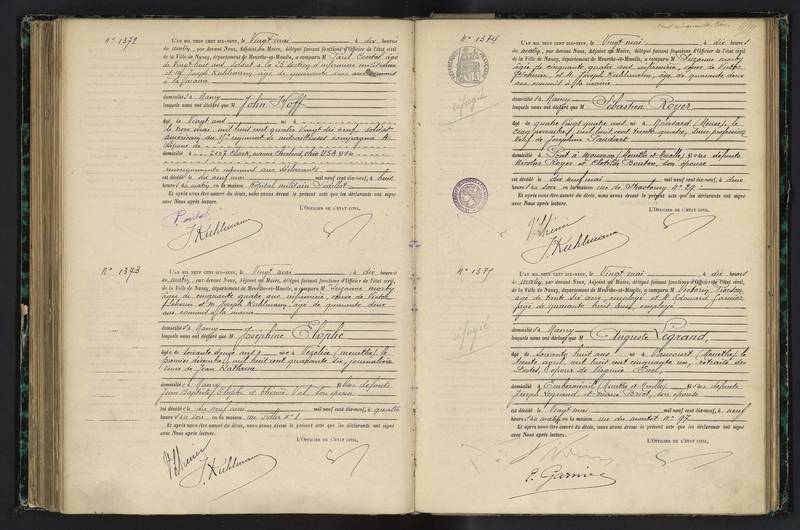 N° 1372
L'AN MIL NEUF CENT DIX-NEUF, le Vingt mai, à dix heures
du matin, par devant Nous, Adjoint au Maire, délégué faisant fonctions d'Officier de l'état civil
de la Ville de Nancy, département de Meurthe-et-Moselle, a comparu M Paul Contal âgé
de Vingt huit ans, soldat à la 23e section d'infirmiers militaires
et M Joseph Kuhlmann, âgé de quarante deux ans commis
à la mairie
domiciliés à Nancy
lesquels nous ont déclaré que M John Hoff
âgé de Vingt ans né à
le trois mai, mil huit cent quatre vingt dix neuf, soldat
américain, au régiment de mitrailleuses compagnie A
domicilié à 2207 Clark, avenue Cleveland, Ohio U.S.A. fils de
renseignements inconnus aux déclarants
est décédé le dix neuf mai mil neuf cent dix-neuf, à huit
heures du matin, en la maison Hôpital militaire Sédillot
Et après nous être assuré du décès, nous avons dressé le présent acte que les déclarants ont signé
avec Nous après lecture.
L'OFFICIER DE L'ÉTAT CIVIL,
P. Contal
J. Kuhlmann
N° 1373
L'AN MIL NEUF CENT DIX-NEUF, le Vingt mai, à dix heures
du matin, par devant Nous, Adjoint au Maire, délégué faisant fonctions d'Officier de l'état civil
de la Ville de Nancy, département de Meurthe-et-Moselle, a comparu M Suzanne
âgée de cinquante quatre ans infirmière, épouse de Victor
et M Joseph Kuhlmann, âgé de quarante deux
ans, commis à la mairie
domiciliés à Nancy
lesquels nous ont déclaré que M Joséphine Elophe
âgée de soixante douze ans née à Vézelise (Meurthe), le
décembre, mil huit cent quarante six, journalière
veuve de Jean
domiciliée à Nancy fille des défunts
Jean Baptiste Elophe et Val, son épouse
est décédée le dix neuf mai mil neuf cent dix-neuf, à quatre
heures du soir, en la maison
Et après nous être assuré du décès, nous avons dressé le présent acte que les déclarants ont signé
avec Nous après lecture.
L'OFFICIER DE L'ÉTAT CIVIL,
J. Kuhlmann
N° 1374
réfugié
L'AN MIL NEUF CENT DIX-NEUF, le Vingt mai, à dix heures
du matin, par devant Nous, Adjoint au Maire, délégué faisant fonctions d'Officier de l'état civil
de la Ville de Nancy, département de Meurthe-et-Moselle, a comparu M Suzanne
âgée de cinquante quatre ans, infirmière, épouse de Victor
et M Joseph Kuhlmann, âgé de quarante deux
ans commis à la mairie
domiciliés à Nancy
lesquels nous ont déclaré que M Sébastien Royer,
âgé de quatre vingt quatre ans né à (Meuse), le
cinq novembre mil huit cent trente quatre, sans profession
veuf de Joséphine Saudart
domicilié à Pont à Mousson (Meurthe et Moselle) fils des défunts
Nicolas Royer et Clotilde Bouton, son épouse
est décédé le dix neuf mai mil neuf cent dix-neuf, à deux
heures du soir en la maison rue de Strasbourg N° 29
Et après nous être assuré du décès, nous avons dressé le présent acte que les déclarants ont signé
avec Nous après lecture.
L'OFFICIER DE L'ÉTAT CIVIL,
J. Kuhlmann
N° 1375
réfugié
L'AN MIL NEUF CENT DIX-NEUF, le Vingt mai, à dix heures
du matin, par devant Nous, Adjoint au Maire, délégué faisant fonctions d'Officier de l'état civil
de la Ville de Nancy, département de Meurthe-et-Moselle, a comparu M Victorin
âgé de trente six ans, employé et M Edouard Garnier
âgé de quarante huit ans, employé
domiciliés à Nancy
lesquels nous ont déclaré que M Auguste Legrand,
âgé de soixante huit ans né à (Meurthe), le
trente août, mil huit cent cinquante un, retraité des
Postes, époux de Virginie
domicilié à Emberménil (Meurthe et Moselle) fils des défunts
Joseph Legrand et Marie Briot, son épouse
est décédé le Vingt mai mil neuf cent dix-neuf, à neuf
heures du matin en la maison rue N° 97
Et après nous être assuré du décès, nous avons dressé le présent acte que les déclarants ont signé
avec Nous après lecture.
L'OFFICIER DE L'ÉTAT CIVIL,
E. Garnier